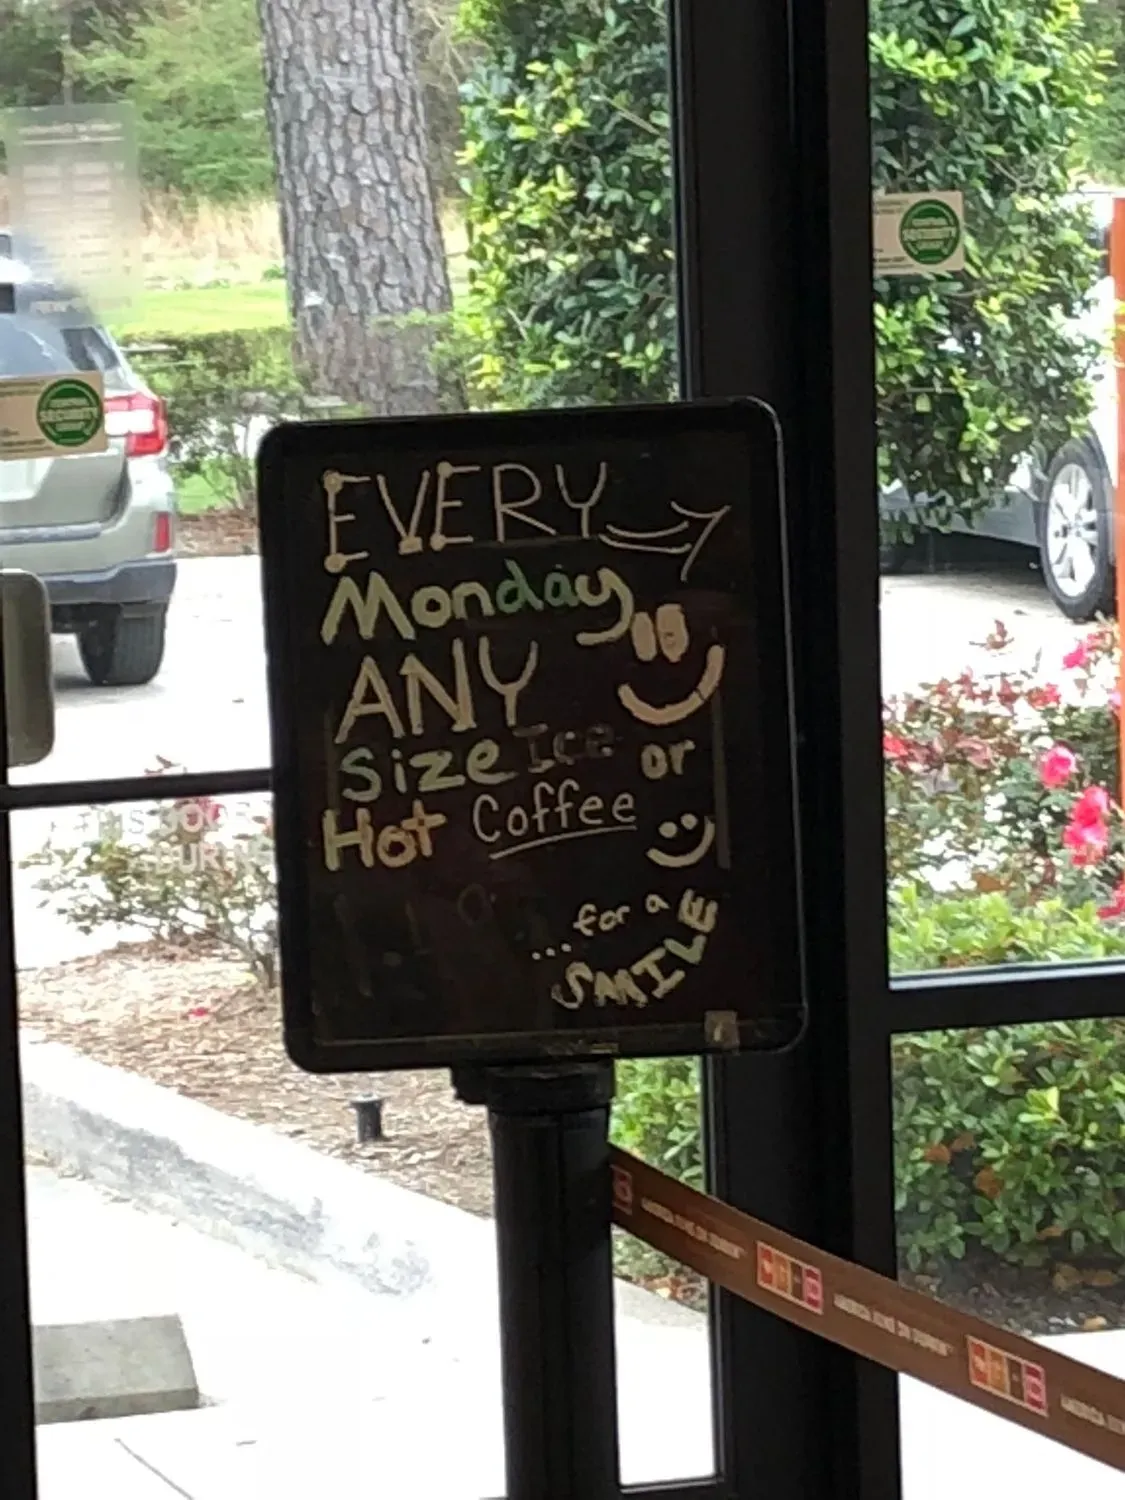 EVERY
Monday
ANY
Size Ice or
Hot Coffee
...for a
SMILE
SECURITY
AMERICA RUNS ON DUNKIN'
AMERICA RUNS ON DUNKIN'